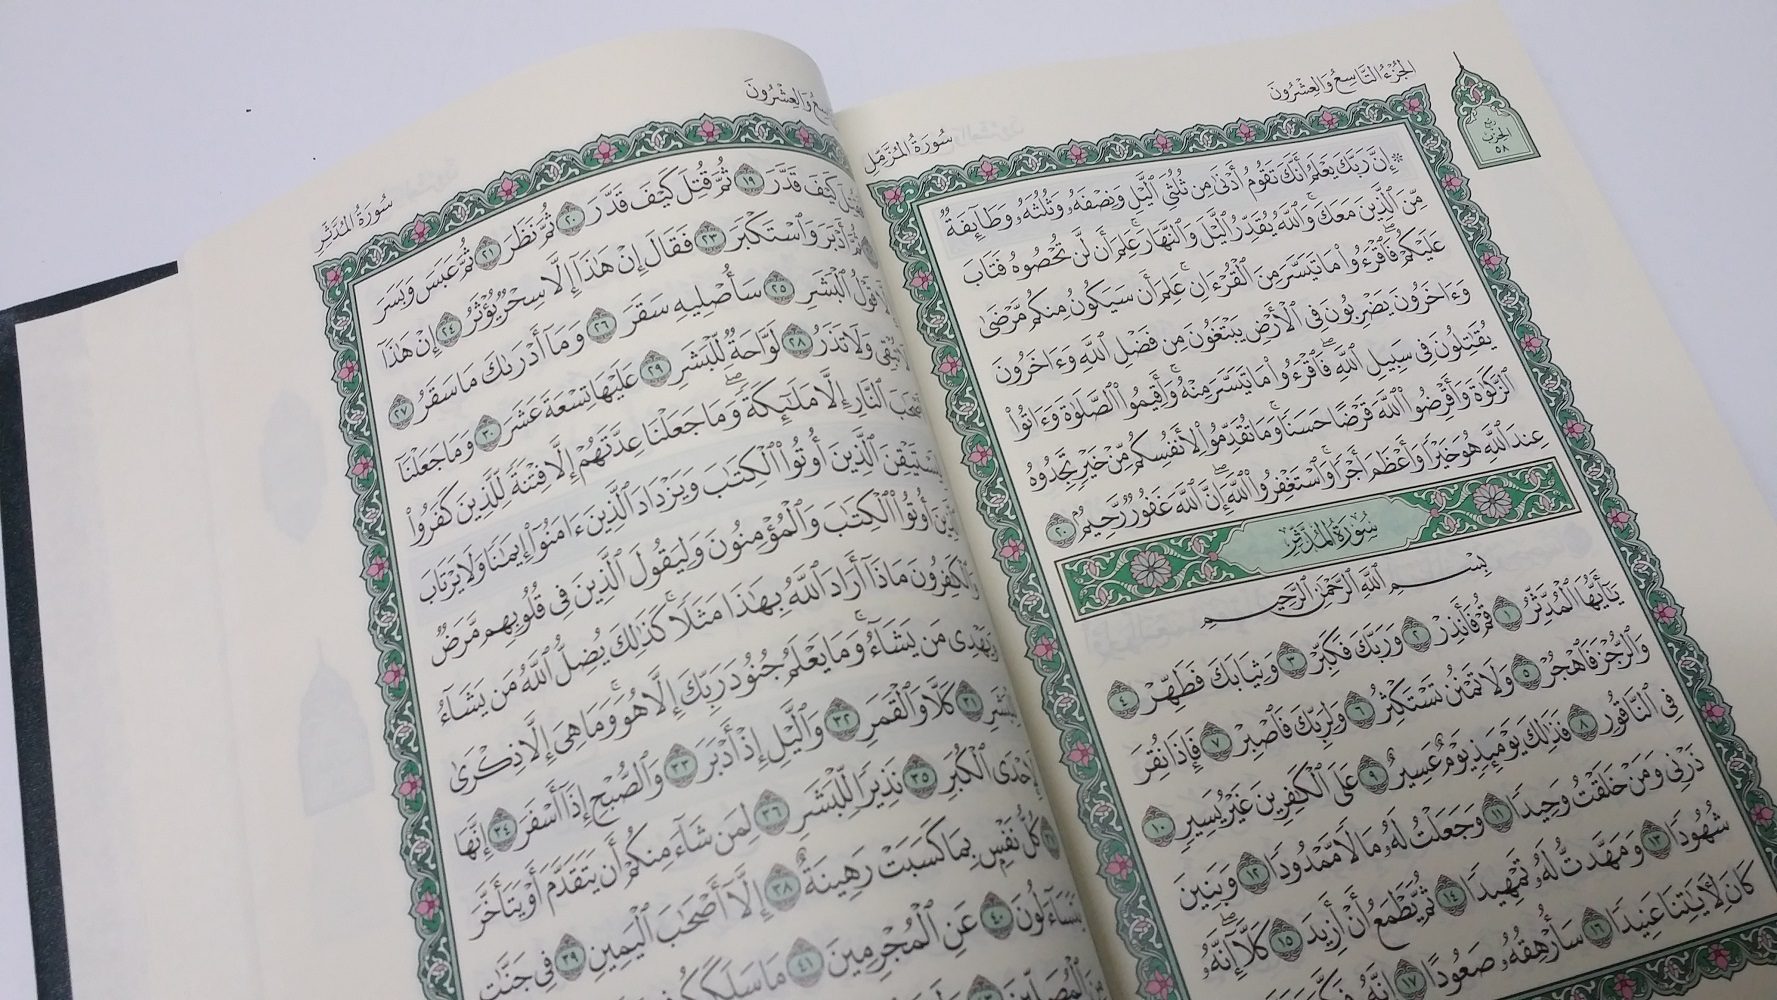 الجُزْءُ التَّاسِعُ وَالعِشْرُونَ
سُورَةُ المُزَّمِّل
ربع
الحزب
٥٨
۞ إِنَّ رَبَّكَ يَعْلَمُ أَنَّكَ تَقُومُ أَدْنَىٰ مِن ثُلُثَيِ ٱلَّيْلِ وَنِصْفَهُۥ وَثُلُثَهُۥ وَطَآئِفَةٌ
مِّنَ ٱلَّذِينَ مَعَكَ ۚ وَٱللَّهُ يُقَدِّرُ ٱلَّيْلَ وَٱلنَّهَارَ ۚ عَلِمَ أَن لَّن تُحْصُوهُ فَتَابَ
عَلَيْكُمْ ۖ فَٱقْرَءُوا۟ مَا تَيَسَّرَ مِنَ ٱلْقُرْءَانِ ۚ عَلِمَ أَن سَيَكُونُ مِنكُم مَّرْضَىٰ
وَءَاخَرُونَ يَضْرِبُونَ فِى ٱلْأَرْضِ يَبْتَغُونَ مِن فَضْلِ ٱللَّهِ وَءَاخَرُونَ
يُقَٰتِلُونَ فِى سَبِيلِ ٱللَّهِ ۖ فَٱقْرَءُوا۟ مَا تَيَسَّرَ مِنْهُ ۚ وَأَقِيمُوا۟ ٱلصَّلَوٰةَ وَءَاتُوا۟
ٱلزَّكَوٰةَ وَأَقْرِضُوا۟ ٱللَّهَ قَرْضًا حَسَنًا ۚ وَمَا تُقَدِّمُوا۟ لِأَنفُسِكُم مِّنْ خَيْرٍ تَجِدُوهُ
عِندَ ٱللَّهِ هُوَ خَيْرًا وَأَعْظَمَ أَجْرًا ۚ وَٱسْتَغْفِرُوا۟ ٱللَّهَ ۖ إِنَّ ٱللَّهَ غَفُورٌ رَّحِيمٌۢ ٢٠
سُورَةُ المُدَّثِّرِ
بِسْمِ ٱللَّهِ ٱلرَّحْمَٰنِ ٱلرَّحِيمِ
يَٰٓأَيُّهَا ٱلْمُدَّثِّرُ ١ قُمْ فَأَنذِرْ ٢ وَرَبَّكَ فَكَبِّرْ ٣ وَثِيَابَكَ فَطَهِّرْ ٤
وَٱلرُّجْزَ فَٱهْجُرْ ٥ وَلَا تَمْنُن تَسْتَكْثِرُ ٦ وَلِرَبِّكَ فَٱصْبِرْ ٧ فَإِذَا نُقِرَ
فِى ٱلنَّاقُورِ ٨ فَذَٰلِكَ يَوْمَئِذٍ يَوْمٌ عَسِيرٌ ٩ عَلَى ٱلْكَٰفِرِينَ غَيْرُ يَسِيرٍ ١٠
ذَرْنِى وَمَنْ خَلَقْتُ وَحِيدًا ١١ وَجَعَلْتُ لَهُۥ مَالًا مَّمْدُودًا ١٢ وَبَنِينَ
شُهُودًا ١٣ وَمَهَّدتُّ لَهُۥ تَمْهِيدًا ١٤ ثُمَّ يَطْمَعُ أَنْ أَزِيدَ ١٥ كَلَّآ ۖ إِنَّهُۥ
كَانَ لِءَايَٰتِنَا عَنِيدًا ١٦ سَأُرْهِقُهُۥ صَعُودًا ١٧ إِنَّهُۥ فَكَّرَ
وَالعِشْرُونَ
سُورَةُ المُدَّثِّر
كَيْفَ قَدَّرَ ١٩ ثُمَّ قُتِلَ كَيْفَ قَدَّرَ ٢٠ ثُمَّ نَظَرَ ٢١ ثُمَّ عَبَسَ وَبَسَرَ
ثُمَّ أَدْبَرَ وَٱسْتَكْبَرَ ٢٣ فَقَالَ إِنْ هَٰذَآ إِلَّا سِحْرٌ يُؤْثَرُ ٢٤ إِنْ هَٰذَآ
قَوْلُ ٱلْبَشَرِ ٢٥ سَأُصْلِيهِ سَقَرَ ٢٦ وَمَآ أَدْرَىٰكَ مَا سَقَرُ ٢٧
وَلَا تَذَرُ ٢٨ لَوَّاحَةٌ لِّلْبَشَرِ ٢٩ عَلَيْهَا تِسْعَةَ عَشَرَ ٣٠ وَمَا جَعَلْنَآ
ٱلنَّارِ إِلَّا مَلَٰٓئِكَةً ۙ وَمَا جَعَلْنَا عِدَّتَهُمْ إِلَّا فِتْنَةً لِّلَّذِينَ كَفَرُوا۟
ٱلَّذِينَ أُوتُوا۟ ٱلْكِتَٰبَ وَيَزْدَادَ ٱلَّذِينَ ءَامَنُوٓا۟ إِيمَٰنًا ۙ وَلَا يَرْتَابَ
أُوتُوا۟ ٱلْكِتَٰبَ وَٱلْمُؤْمِنُونَ ۙ وَلِيَقُولَ ٱلَّذِينَ فِى قُلُوبِهِم مَّرَضٌ
وَٱلْكَٰفِرُونَ مَاذَآ أَرَادَ ٱللَّهُ بِهَٰذَا مَثَلًا ۚ كَذَٰلِكَ يُضِلُّ ٱللَّهُ مَن يَشَآءُ
وَيَهْدِى مَن يَشَآءُ ۚ وَمَا يَعْلَمُ جُنُودَ رَبِّكَ إِلَّا هُوَ ۚ وَمَا هِىَ إِلَّا ذِكْرَىٰ
لِلْبَشَرِ ٣١ كَلَّا وَٱلْقَمَرِ ٣٢ وَٱلَّيْلِ إِذْ أَدْبَرَ ٣٣ وَٱلصُّبْحِ إِذَآ أَسْفَرَ ٣٤ إِنَّهَا
لَإِحْدَى ٱلْكُبَرِ ٣٥ نَذِيرًا لِّلْبَشَرِ ٣٦ لِمَن شَآءَ مِنكُمْ أَن يَتَقَدَّمَ أَوْ يَتَأَخَّرَ
كُلُّ نَفْسٍۭ بِمَا كَسَبَتْ رَهِينَةٌ ٣٨ إِلَّآ أَصْحَٰبَ ٱلْيَمِينِ ٣٩ فِى جَنَّٰتٍ
يَتَسَآءَلُونَ ٤٠ عَنِ ٱلْمُجْرِمِينَ ٤١ مَا سَلَكَكُمْ
ٱلْمُصَلِّينَ